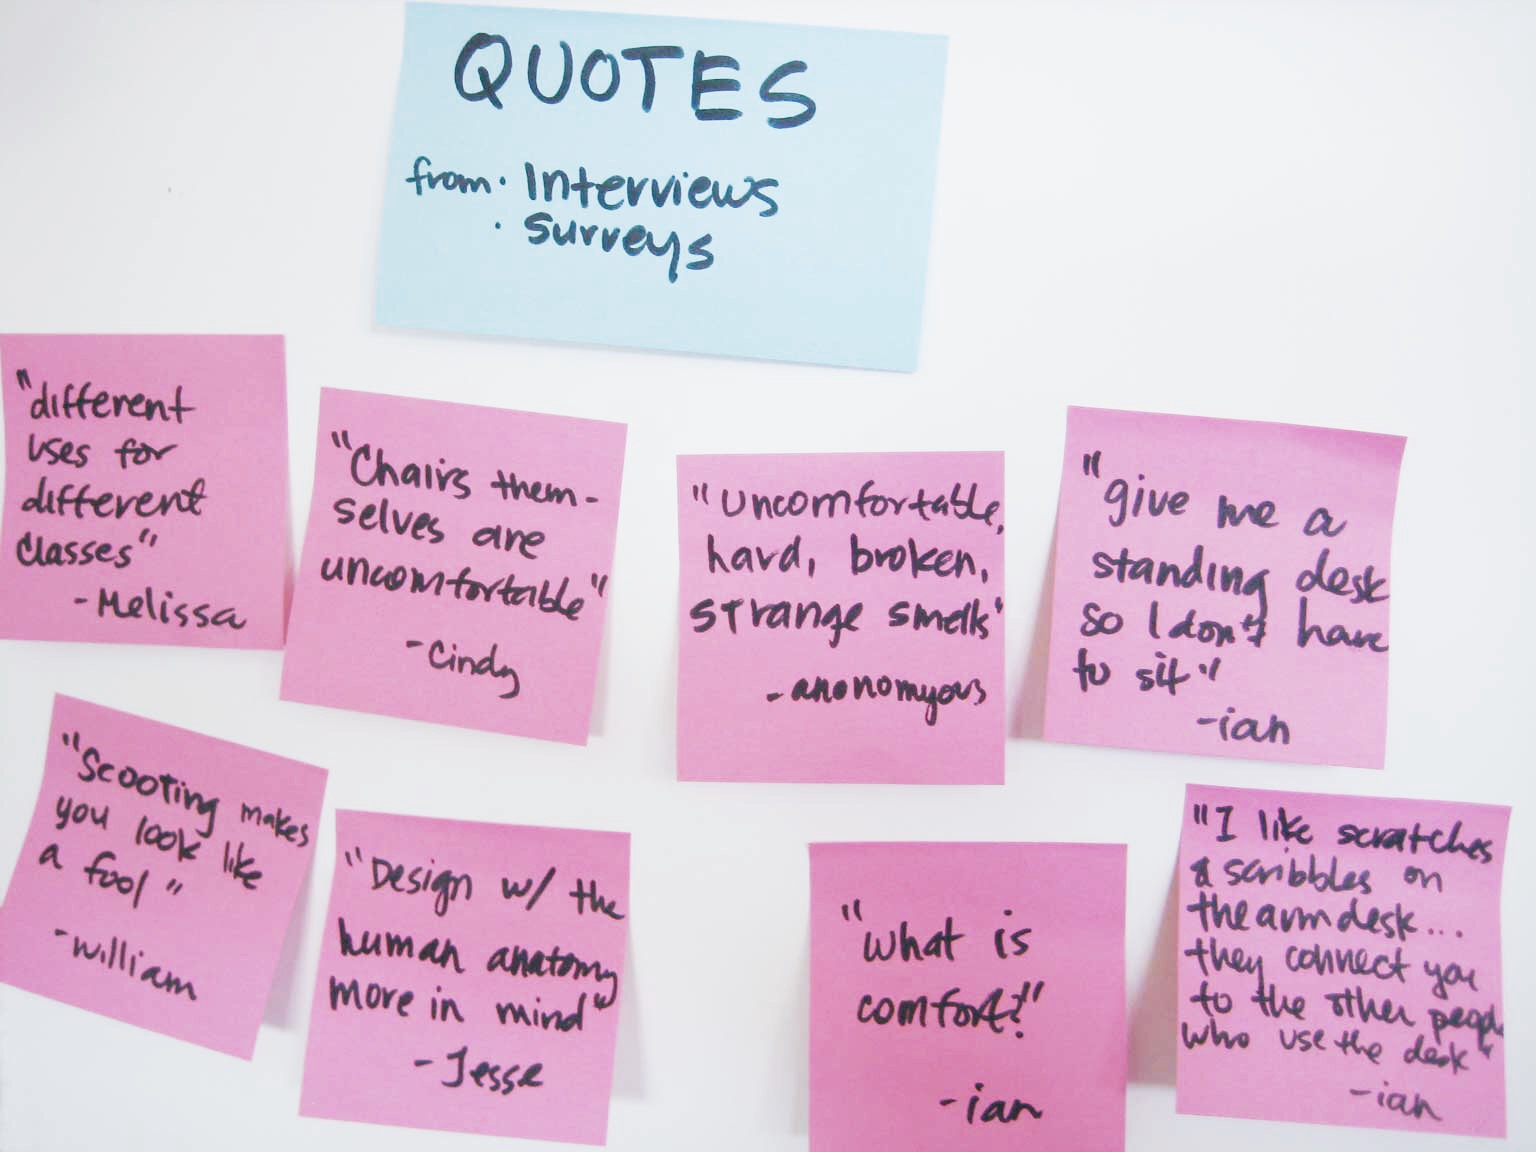 QUOTES
from · Interviews
· surveys
"different
uses for
different
classes"
-Melissa
"Chairs them-
selves are
uncomfortable"
-Cindy
"uncomfortable,
hard, broken,
strange smells"
-anonomyous
"give me a
standing desk
so I don't have
to sit"
-ian
"Scooting makes
you look like
a fool"
-william
"Design w/ the
human anatomy
more in mind"
-Jesse
"what is
comfort?"
-ian
"I like scratches
& scribbles on
the arm desk...
they connect you
to the other people
who use the desk"
-ian